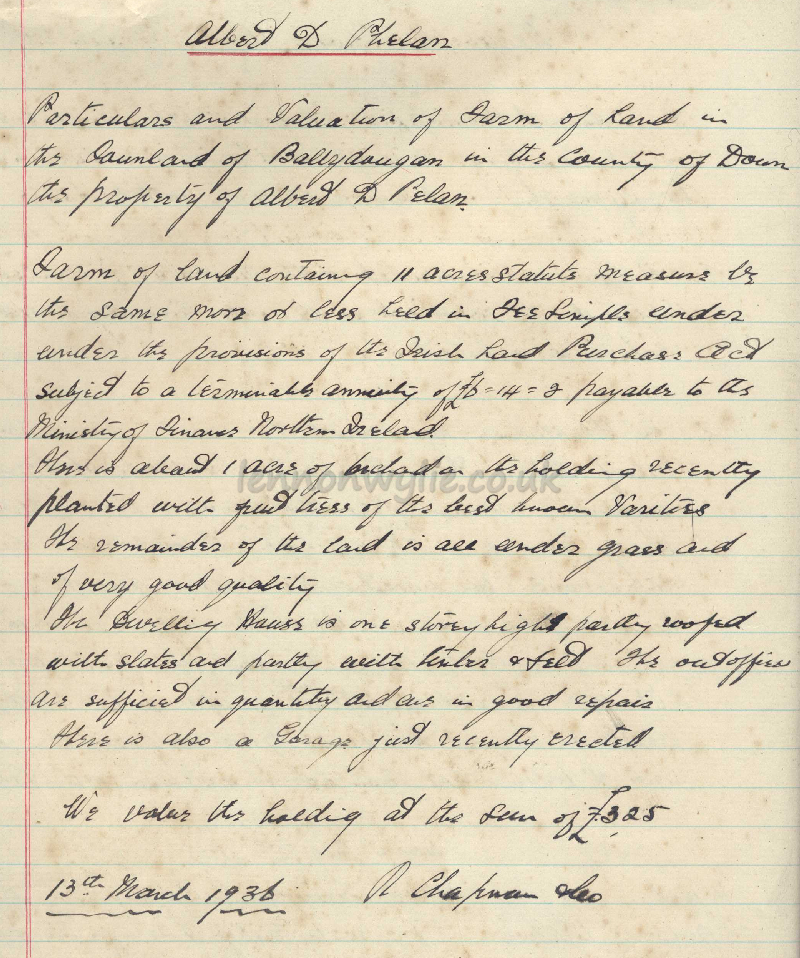 Albert D Phelan
Particulars and Valuation of Farm of Land in
the Townland of Ballydougan in the County of Down
the property of Albert D Pelan.
Farm of land containing 11 acres statute measure be
the same more or less held in Fee Simple under
under the provisions of the Irish Land Purchase Act
subject to a terminable annuity of £6=14=2 payable to the
Ministry of Finance Northern Ireland.
There is about 1 acre of on the holding recently
lennonwylie.co.uk
planted with fruit trees of the best known Varities
The remainder of the land is all under grass and
of very good quality
The Dwelling House is one storey high partly roofed
with slates and partly with timber & felt The outoffices
are sufficient in quantity and are in good repair
There is also a Garage just recently erected
We value the holding at the sum of £325
13th March 1936 R Chapman & Co